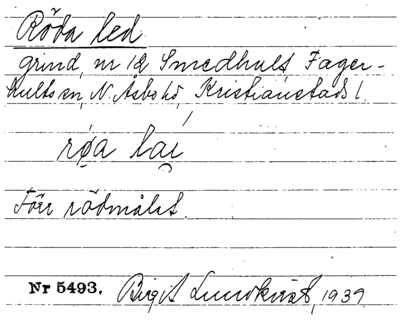 Röda led
grind, nr 12 Smedhult Fager-
hults sn, N. Åsbo hd, Kristianstads l.
røa lai
Förr rödmålat.
Nr 5493. Birgit Lundkvist, 1939